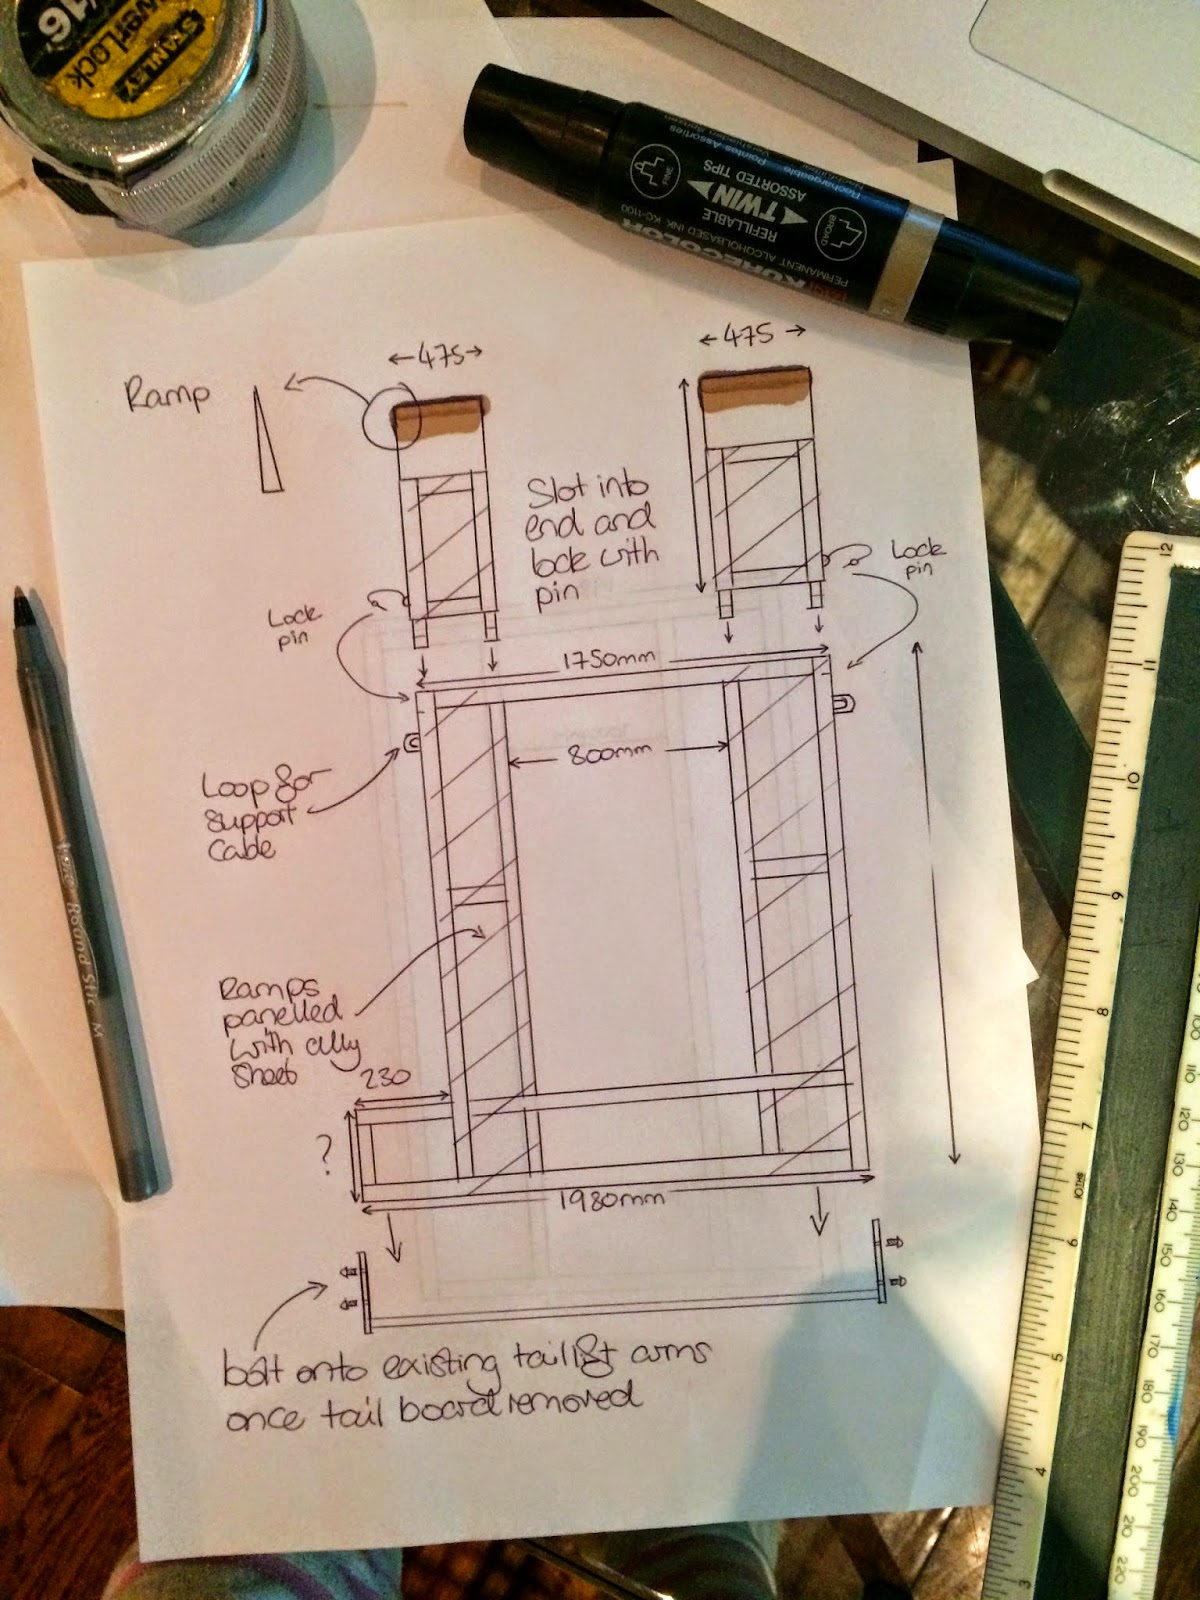 16'
PowerLock
STANLEY
FINE
BROAD
Rechargeable Pointes Assorties
ASSORTED TIPS
TWIN
REFILLABLE
PERMANENT ALCOHOLBASED INK KC-1100
KURECOLOR
475
475
Ramp
Slot into
end and
lock with
pin
Lock
pin
Lock
pin
1750mm
800mm
Loop for
support
Cable
Ramps
panelled
with ally
sheet
230
?
1980mm
bolt onto existing taillift arms
once tail board removed
Round Stic M
12
11
10
9
8
7
6
5
4
3
110
120
130
140
150
160
170
180
190
200
210
220